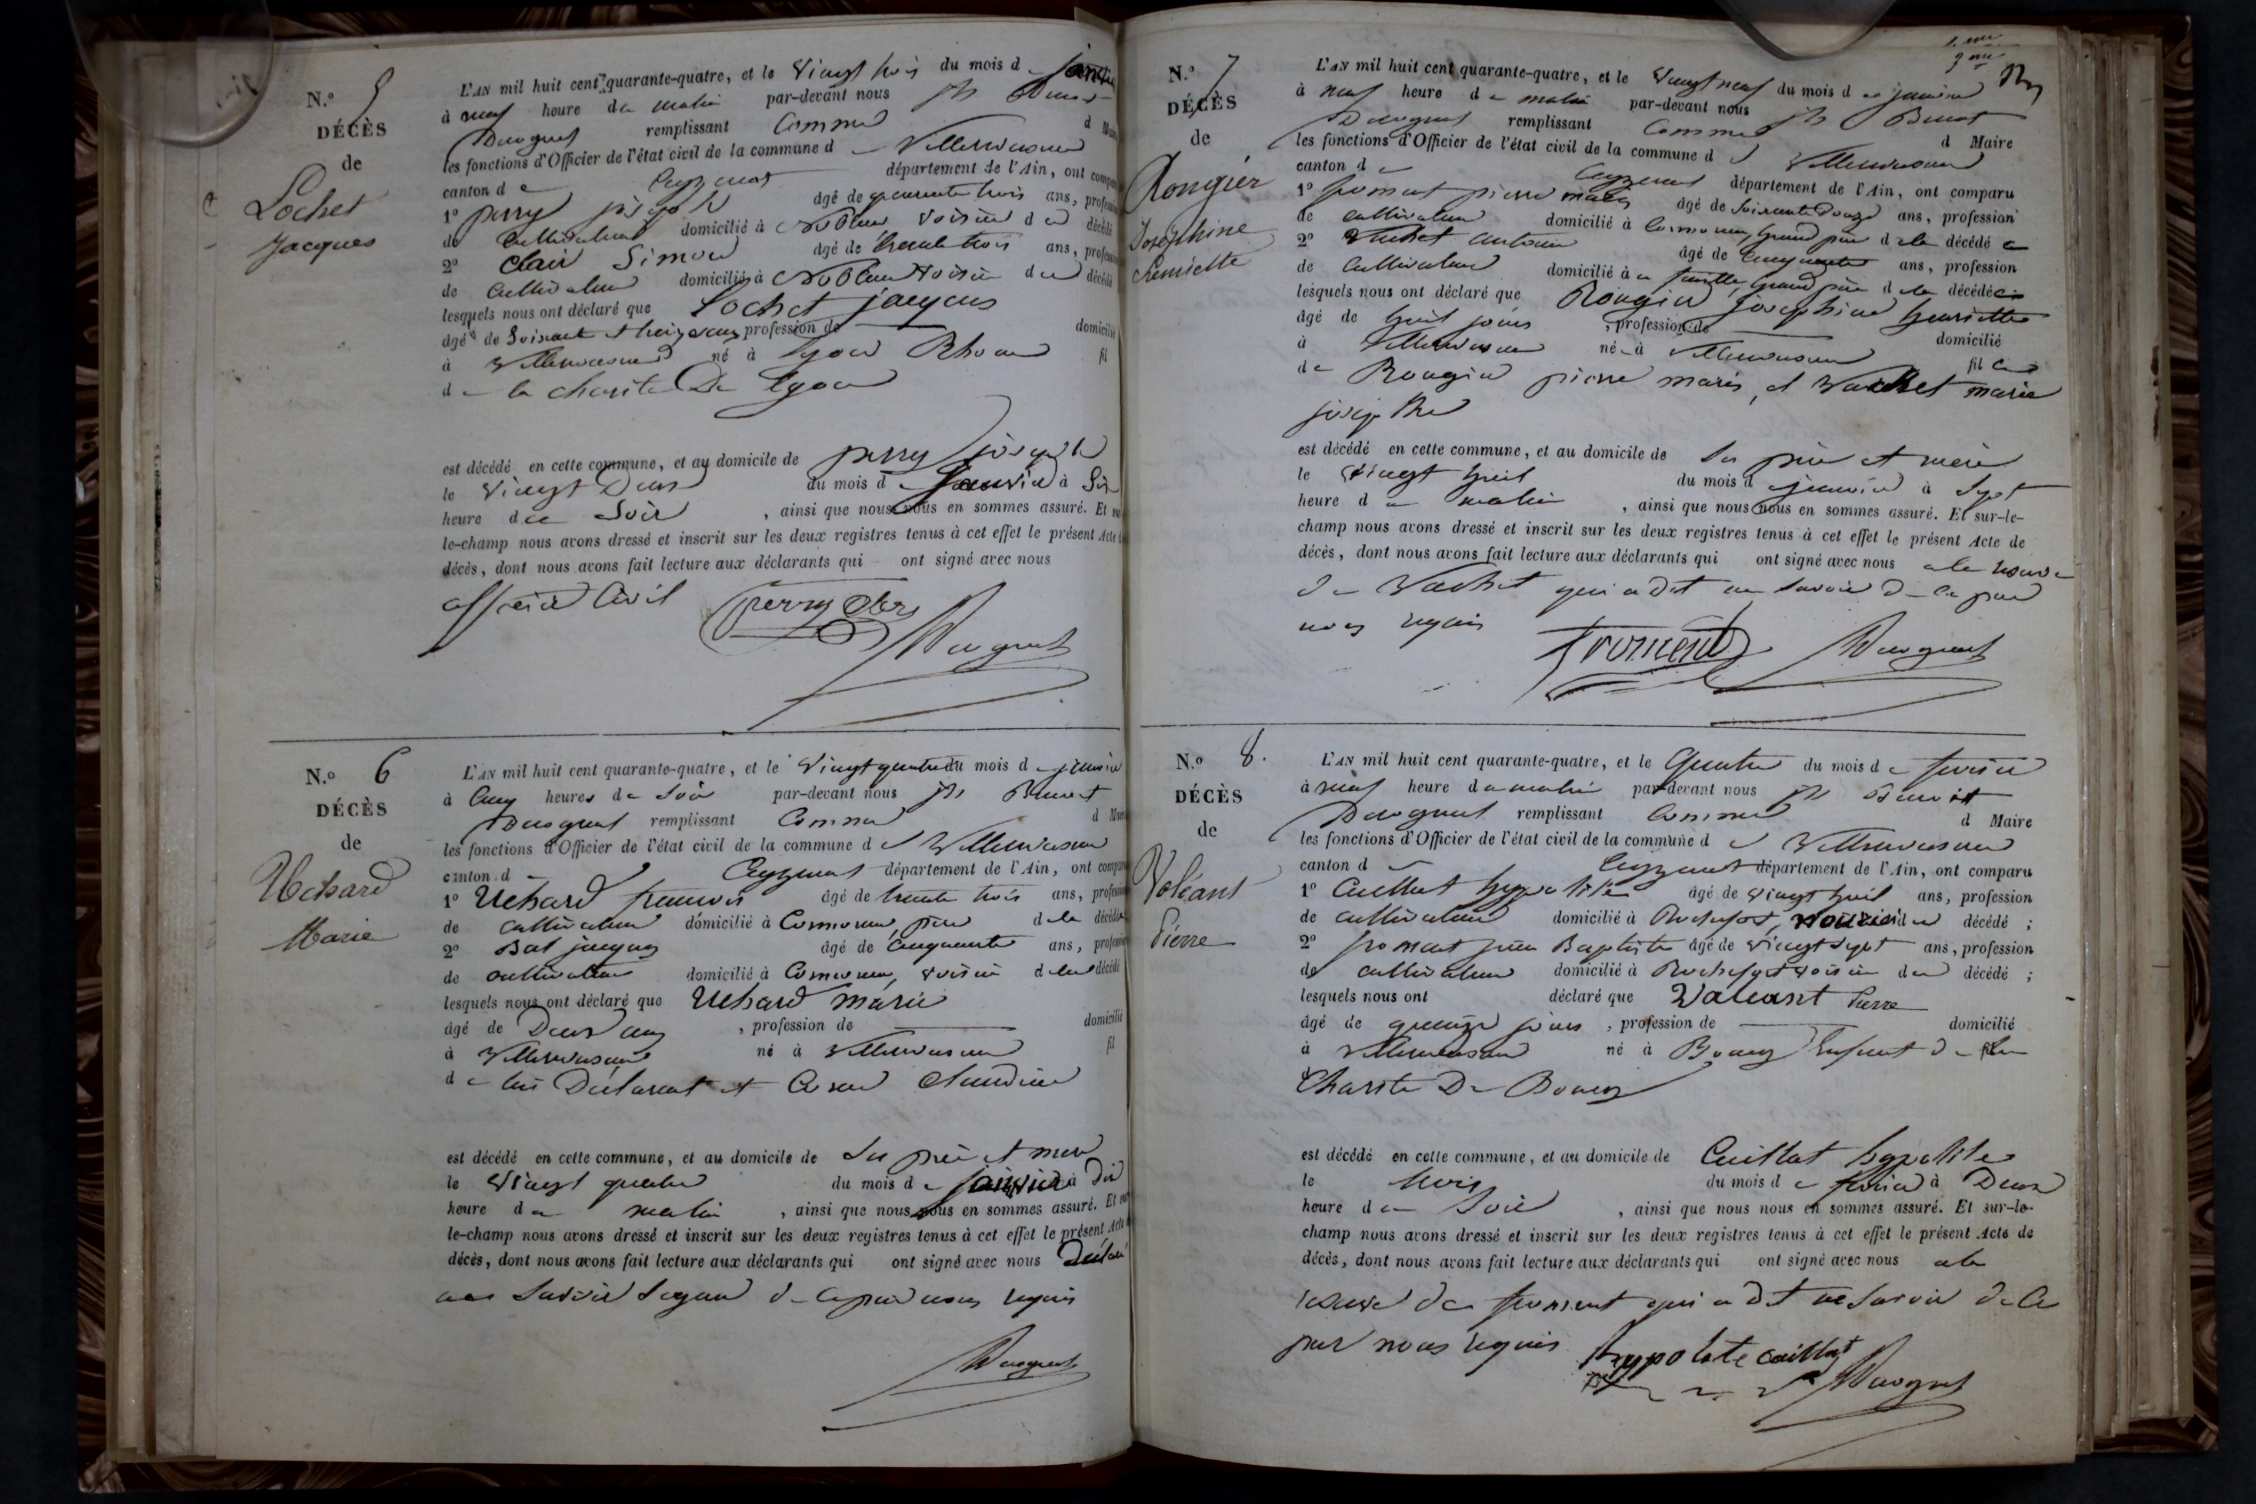 N.o 5
DÉCÈS
de
Lochet
Jacques
L'AN mil huit cent quarante-quatre, et le vingt trois du mois de janvier
à neuf heure du matin par-devant nous
remplissant comme d
les fonctions d'Officier de l'état civil de la commune de Villereversure
canton de Ceyzeriat département de l'Ain, ont
1o perry joseph âgé de quarante trois ans,
de cultivateur domicilié à Noblens voisin du décédé
2o Clair Simon âgé de trente trois ans,
de cultivateur domicilié à Noblens voisin du décédé
lesquels nous ont déclaré que Lochet jacques
âgé de soixante et treize ans profession de domicilié
à Villereversure né à Lyon Rhone fil
de la charité De Lyon
est décédé en cette commune, et au domicile de perry joseph
le vingt Deux du mois de janvier à
heure du soir, ainsi que nous nous en sommes assuré. Et
le-champ nous avons dressé et inscrit sur les deux registres tenus à cet effet le présent Acte
décès, dont nous avons fait lecture aux déclarants qui ont signé avec nous
officier Civil perry
N.o 6
DÉCÈS
de
Uchard
Marie
L'AN mil huit cent quarante-quatre, et le vingt quatre du mois de janvier
à cinq heures du soir par-devant nous
remplissant comme d
les fonctions d'Officier de l'état civil de la commune de Villereversure
canton d Ceyzeriat département de l'Ain, ont
1o Uchard françois âgé de trente trois ans,
de cultivateur domicilié à Cormoreau, père de la décédée
2o Bat jacques âgé de cinquante ans,
de cultivateur domicilié à Cormoreau, voisin de la décédé
lesquels nous ont déclaré que Uchard marie
âgé de Deux ans, profession de domicilié
à Villereversure né à Villereversure fil
de lui Déclarant et Claudine
est décédé en cette commune, et au domicile de ses père et mère
le vingt quatre du mois de janvier à Dix
heure du matin, ainsi que nous nous en sommes assuré. Et
le-champ nous avons dressé et inscrit sur les deux registres tenus à cet effet le présent Acte
décès, dont nous avons fait lecture aux déclarants qui ont signé avec nous
savoir signer de ce par nous requis
N.o 7
DÉCÈS
de
Rongier
Josephine
L'AN mil huit cent quarante-quatre, et le vingt neuf du mois de janvier
à neuf heure du matin par-devant nous
remplissant comme d Maire
les fonctions d'Officier de l'état civil de la commune de Villereversure
canton de Ceyzeriat département de l'Ain, ont comparu
1o froment pierre marie âgé de soixante Douze ans, profession
de cultivateur domicilié à Cormoreau, grand père de la décédé
2o Vachet antoine âgé de cinquante ans, profession
de cultivateur domicilié à, grand père de la décédé
lesquels nous ont déclaré que Rongier josephine henriette
âgé de huit jours, profession de domicilié
à Villereversure né à Villereversure fil
de Rongier pierre marie, et Vachet marie
josephte
est décédé en cette commune, et au domicile de ses père et mère
le vingt huit du mois de janvier à sept
heure du matin, ainsi que nous nous en sommes assuré. Et sur-le-
champ nous avons dressé et inscrit sur les deux registres tenus à cet effet le présent Acte de
décès, dont nous avons fait lecture aux déclarants qui ont signé avec nous a la réserve
de Vachet qui a dit ne savoir de ce par
nous requis froment
N.o 8.
DÉCÈS
de
Voléant
Pierre
L'AN mil huit cent quarante-quatre, et le quatre du mois de février
à neuf heure du matin par-devant nous
remplissant comme d Maire
les fonctions d'Officier de l'état civil de la commune de Villereversure
canton d Ceyzeriat département de l'Ain, ont comparu
1o Cuillat hypolite âgé de vingt huit ans, profession
de cultivateur domicilié à Rochefort, du décédé ;
2o froment jean Baptiste âgé de vingt sept ans, profession
de cultivateur domicilié à Rochefort voisin du décédé ;
lesquels nous ont déclaré que Valeant Pierre
âgé de quinze jours, profession de domicilié
à Villereversure né à Bourg Enfant de la
Charité De Bourg
est décédé en cette commune, et au domicile de Cuillat hypolite
le trois du mois de février à Deux
heure du soir, ainsi que nous nous en sommes assuré. Et sur-le-
champ nous avons dressé et inscrit sur les deux registres tenus à cet effet le présent Acte de
décès, dont nous avons fait lecture aux déclarants qui ont signé avec nous a la
réserve de froment qui a dit ne savoir de ce
par nous requis hypolate cuillat